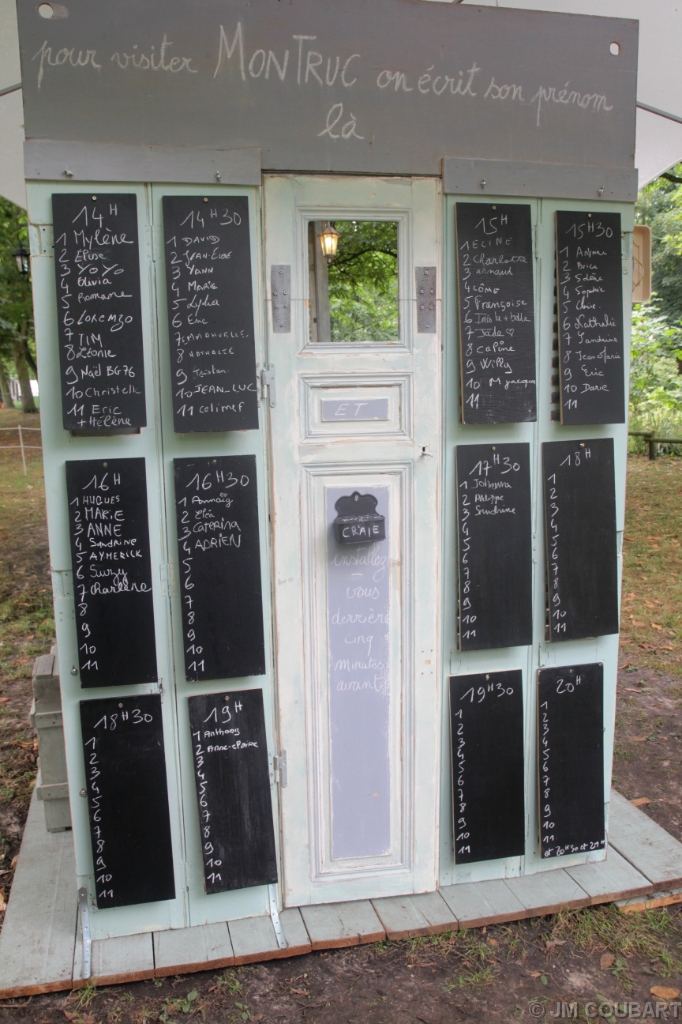 pour visiter MONTRUC on écrit son prénom
là
14H
1 Mylène
2 Elise
3 YoYo
4 Olivia
5 Romane
6 Lorenzo
7 TIM
8 Léonie
9 Naël BG76
10 Christelle
11 Eric
+ Hélène
14H30
1 DAVID
2
3 YANN
4 MARIE
5 Lydia
6 Eric
7
8
9
10 JEAN-LUC
11
15H
1 CÉLINE
2 Charlotte
3 Arnaud
4 CÔME
5 Françoise
6
7 Jade ♡
8
9 Willy
10 M
11
15H30
1
2
3
4 Sophie
5
6 Nathalie
7 Sandrine
8 Jean-Marie
9 Eric
10
11
ET
16H
1 HUGUES
2 MARIE
3 ANNE
4 Sandrine
5 AYMERICK
6 Suzy
7 Charlène
8
9
10
11
16H30
1 Annaïg
2
3 Caterina
4 ADRIEN
5
6
7
8
9
10
11
CRAIE
installez
vous
derrière
cinq
minutes
avant
17H30
1 Johanna
2 Philippe
3 Sandrine
4
5
6
7
8
9
10
11
18H
1
2
3
4
5
6
7
8
9
10
11
18H30
1
2
3
4
5
6
7
8
9
10
11
19H
1 Anthony
2 Anne-Claire
3
4
5
6
7
8
9
10
11
19H30
1
2
3
4
5
6
7
8
9
10
11
20H
1
2
3
4
5
6
7
8
9
10
11
et 20H30 et 21H
© JM COUBART